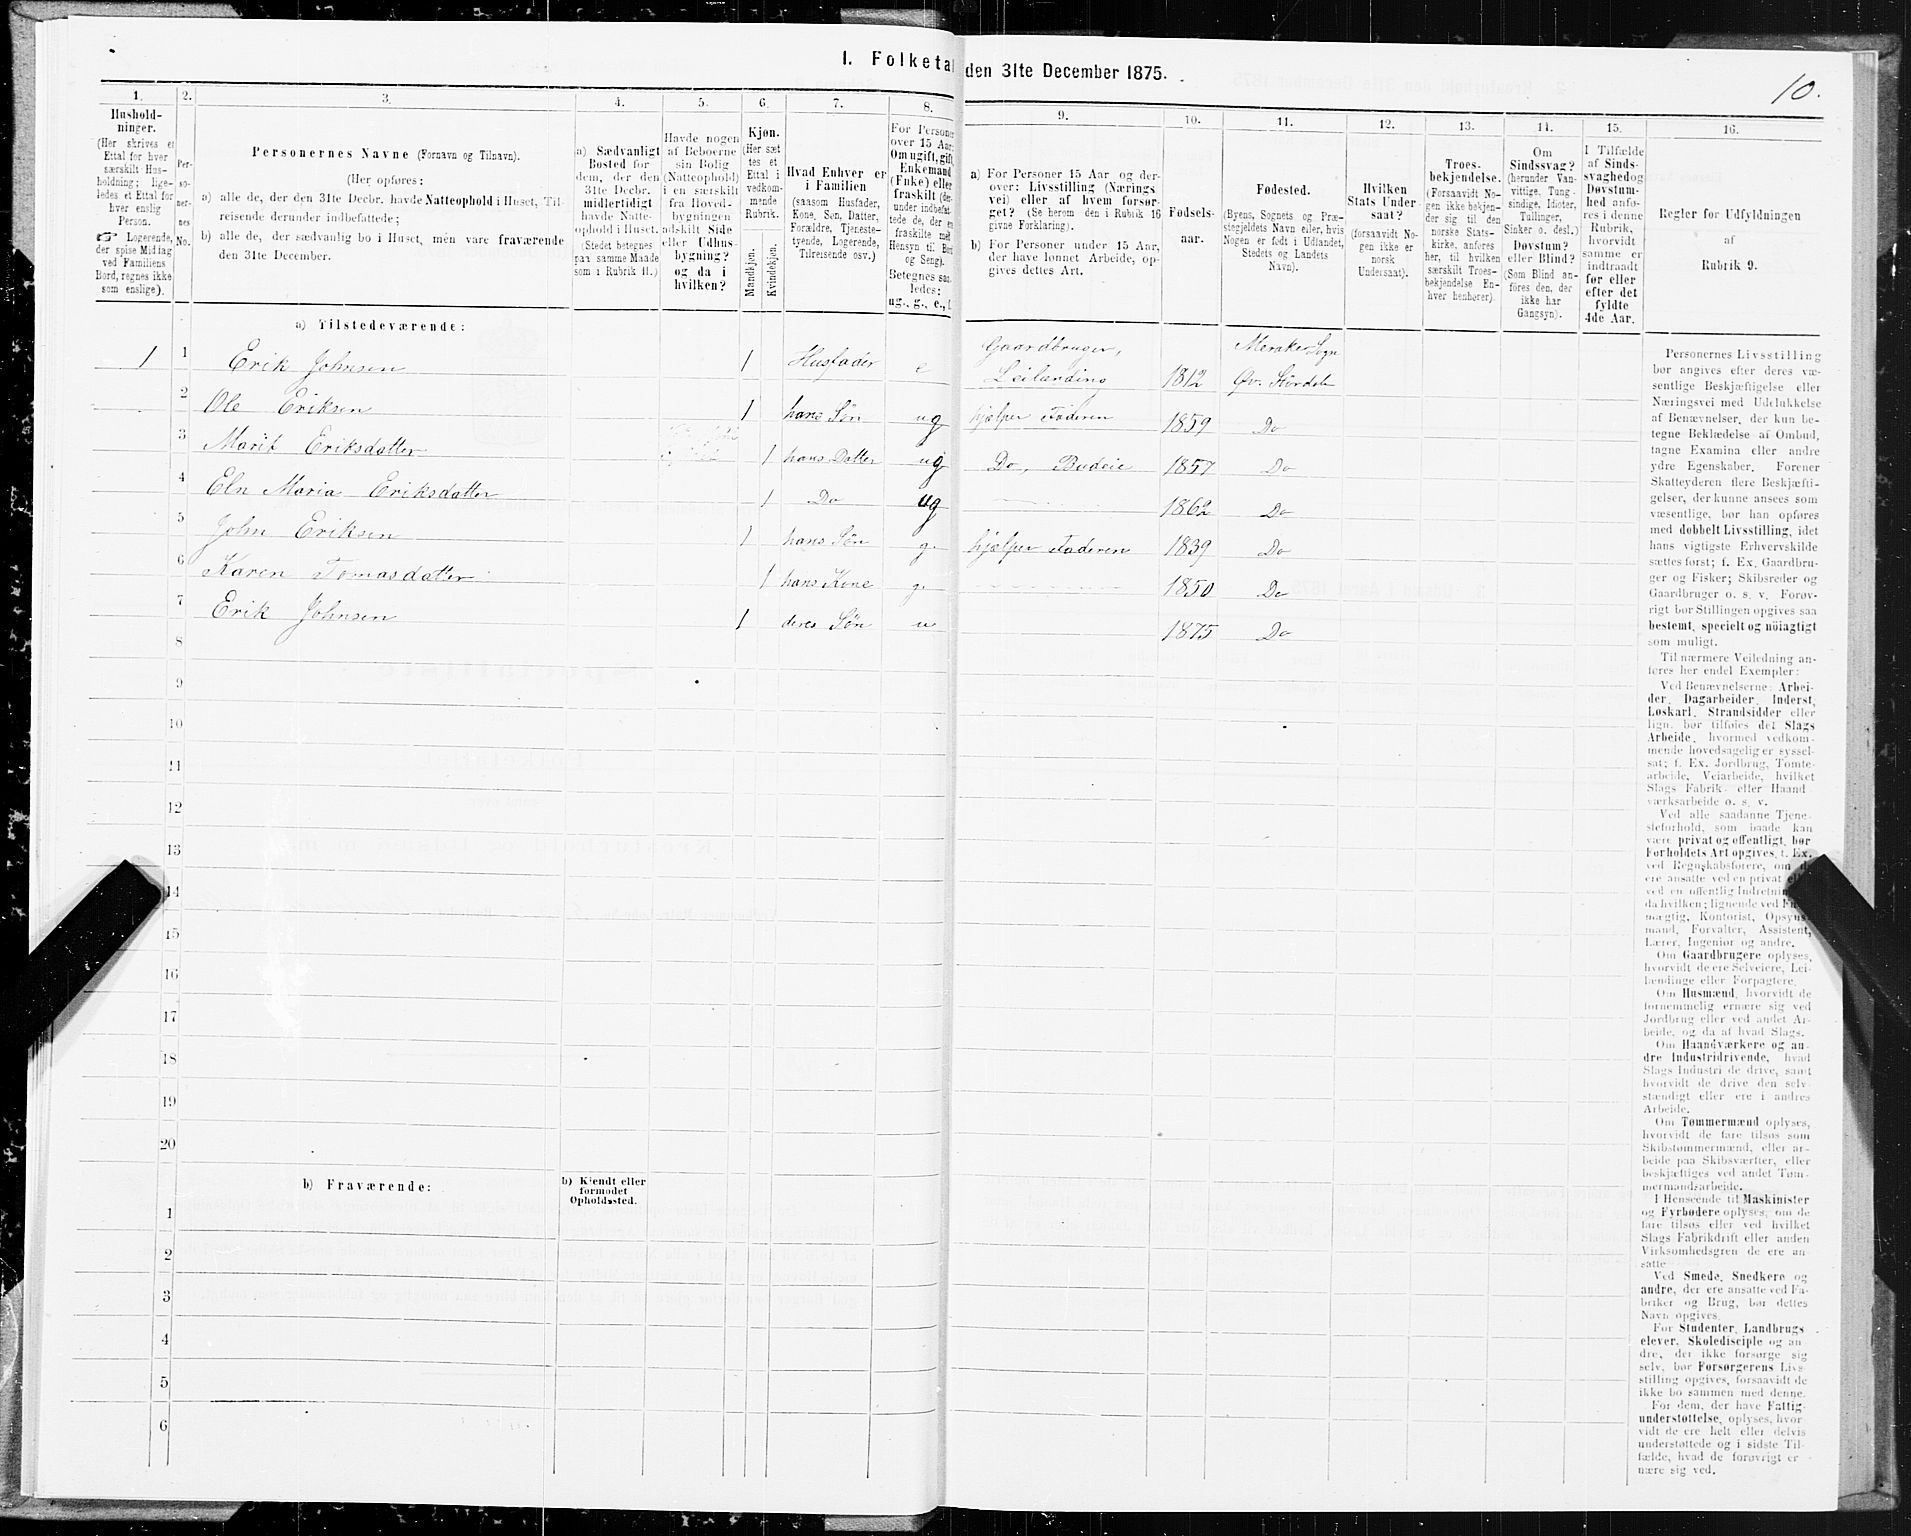 I. Folketal den 31te December 1875.
10.
1. 2. 3. 4. 5. 6. 7. 8. 9. 10. 11. 12. 13. 14. 15. 16.
Hushold-
ninger.
(Her skrives et
Ettal for hver
særskilt Hus-
holdning; lige-
ledes et Ettal for
hver enslig
Person.
☞ Logerende,
der spise Middag
ved Familiens
Bord, regnes ikke
som enslige).
Per-
so-
ner-
nes
No.
Personernes Navne (Fornavn og Tilnavn).
(Her opføres:
a) alle de, der den 31te Decbr. havde Natteophold i Huset, Til-
reisende derunder indbefattede;
b) alle de, der sædvanlig bo i Huset, men vare fraværende
den 31te December.
a) Sædvanligt
Bosted for
dem, der den
31te Decbr.
midlertidigt
havde Natte-
ophold i Huset.
(Stedet betegnes
paa samme Maade
som i Rubrik 11.)
Havde nogen
af Beboerne
sin Bolig
(Natteophold)
i en særskilt
fra Hoved-
bygningen
adskilt Side
eller Udhus-
bygning?
og da i
hvilken?
Kjøn.
(Her sæt
tes et
Ettal i
vedkom-
mende
Rubrik.
Mandkjøn.
Kvindekjøn.
Hvad Enhver er
i Familien
(saasom Husfader,
Kone, Søn, Datter,
Forældre, Tjeneste-
tyende, Logerende,
Tilreisende osv.)
For Personer
over 15 Aar:
Om ugift, gift,
Enkemand
(Enke) eller
fraskilt
Betegnes saa-
ledes:
ug., g., e., f.
a) For Personer 15 Aar og der-
over: Livsstilling (Nærings
vei) eller af hvem forsør-
get? (Se herom den i Rubrik 16
givne Forklaring).
b) For Personer under 15 Aar,
der have lønnet Arbeide, op-
gives dettes Art.
Fødsels-
aar.
Fødested.
(Byens, Sognets og Præ-
stegjeldets Navn eller, hvis
Nogen er født i Udlandet,
Stedets og Landets
Navn).
Hvilken
Stats Under-
saat?
(forsaavidt No-
gen ikke er
norsk
Undersaat).
Troes-
bekjendelse.
(Forsaavidt No-
gen ikke bekjen-
der sig til den
norske Stats-
kirke, anføres
her, til hvilken
særskilt Troes-
bekjendelse En-
hver henhører).
Om
Sindssvag?
(herunder Van-
vittige, Tung-
sindige, Idioter,
Tullinger,
Sinker o. desl.)
Døvstum?
eller Blind?
(Som Blind an-
føres den, der
ikke har
Gangsyn).
I Tilfælde
af Sinds-
svaghed og
Døvstum-
hed anfø-
res i denne
Rubrik,
hvorvidt
samme er
indtraadt
før eller
efter det
fyldte
4de Aar.
Regler for Udfyldningen
af
Rubrik 9.
a) Tilstedeværende:
1 1 Erik Johnsen 1 Husfader e Gaardbruger, Leilænding 1812 Meraker Sogn Øv. Stördalen
2 Ole Eriksen 1 hans Søn ug hjælper Faderen 1859 Do
3 Marit Eriksdatter 1 hans Datter ug Do, Budeie 1857 Do
4 Eln Maria Eriksdatter 1 Do ug 1862 Do
5 John Eriksen 1 hans Søn g. hjælper Faderen 1839 Do
6 Karen Tomasdatter 1 hans Kone g. 1850 Do
7 Erik Johnsen 1 deres Søn u 1875 Do
8
9
10
11
12
13
14
15
16
17
18
19
20
b) Fraværende:
b) Kjendt eller
formodet
Opholdssted.
1
2
3
4
5
6
Personernes Livsstilling
bør angives efter deres væ-
sentlige Beskjæftigelse eller
Næringsvei med Udelukkelse
af Benævnelser, der kun be-
tegne Beklædelse af Ombud,
tagne Examina eller andre
ydre Egenskaber. Forener
Skatteyderen flere Beskjæfti-
gelser, der kunne ansees som
væsentlige, bør han opføres
med dobbelt Livsstilling, idet
hans vigtigste Erhvervskilde
sættes først; f. Ex. Gaardbru-
ger og Fisker; Skibsreder og
Gaardbruger o. s. v. Forøv-
rigt bør Stillingen opgives saa
bestemt, specielt og nöiagtigt
som muligt.
Til nærmere Veiledning an-
føres her endel Exempler:
Ved Benævnelserne: Arbei-
der, Dagarbeider, Inderst,
Løskarl, Strandsidder eller
lign. bør tilføies det Slags
Arbeide, hvormed vedkom-
mende hovedsagelig er syssel-
sat; f. Ex. Jordbrug, Tomte-
arbeide, Veiarbeide, hvilket
Slags Fabrik- eller Haand-
værksarbeide o. s. v.
Ved alle saadanne Tjene-
steforhold, som baade kan
være privat og offentligt, bør
Forholdets Art opgives, f. Ex.
ved Regnskabsførere, om de
ere ansatte ved en privat eller
ved en offentlig Indretning og
da hvilken; lignende ved Fuld-
mægtig, Kontorist, Opsyns-
mand, Forvalter, Assistent,
Lærer, Ingeniør og andre.
Om Gaardbrugere oplyses,
hvorvidt de ere Selveiere, Lei-
lændinge eller Forpagtere.
Om Husmænd, hvorvidt de
fornemmelig ernære sig ved
Jordbrug eller ved andet Ar-
beide, og da af hvad Slags.
Om Haandværkere og an-
dre Industridrivende, hvad
Slags Industri de drive, samt
hvorvidt de drive den selv-
stændigt eller ere i andres
Arbeide.
Om Tømmermænd oplyses,
hvorvidt de fare tilsøs som
Skibstømmermænd, eller ar-
beide paa Skibsværfter, eller
beskjæftiges ved andet Tøm-
mermandsarbeide.
I Henseende til Maskinister
og Fyrbødere oplyses, om de
fare tilsøs eller ved hvilket
Slags Fabrikdrift eller anden
Virksomhedsgren de ere an-
satte
Ved Smede, Snedkere og
andre, der ere ansatte ved Fa-
briker og Brug, bør dettes
Navn opgives.
For Studenter, Landbrugs-
elever, Skoledisciple og an-
dre, der ikke forsørge sig
selv, bør Forsørgerens Livs-
stilling opgives, forsaavidt de
ikke bo sammen med denne.
For dem, der have Fattig-
understøttelse, oplyses, hvor-
vidt de ere helt eller delvis
understøttede og i sidste Til-
fælde, hvad de forøvrigt er-
nære sig ved.